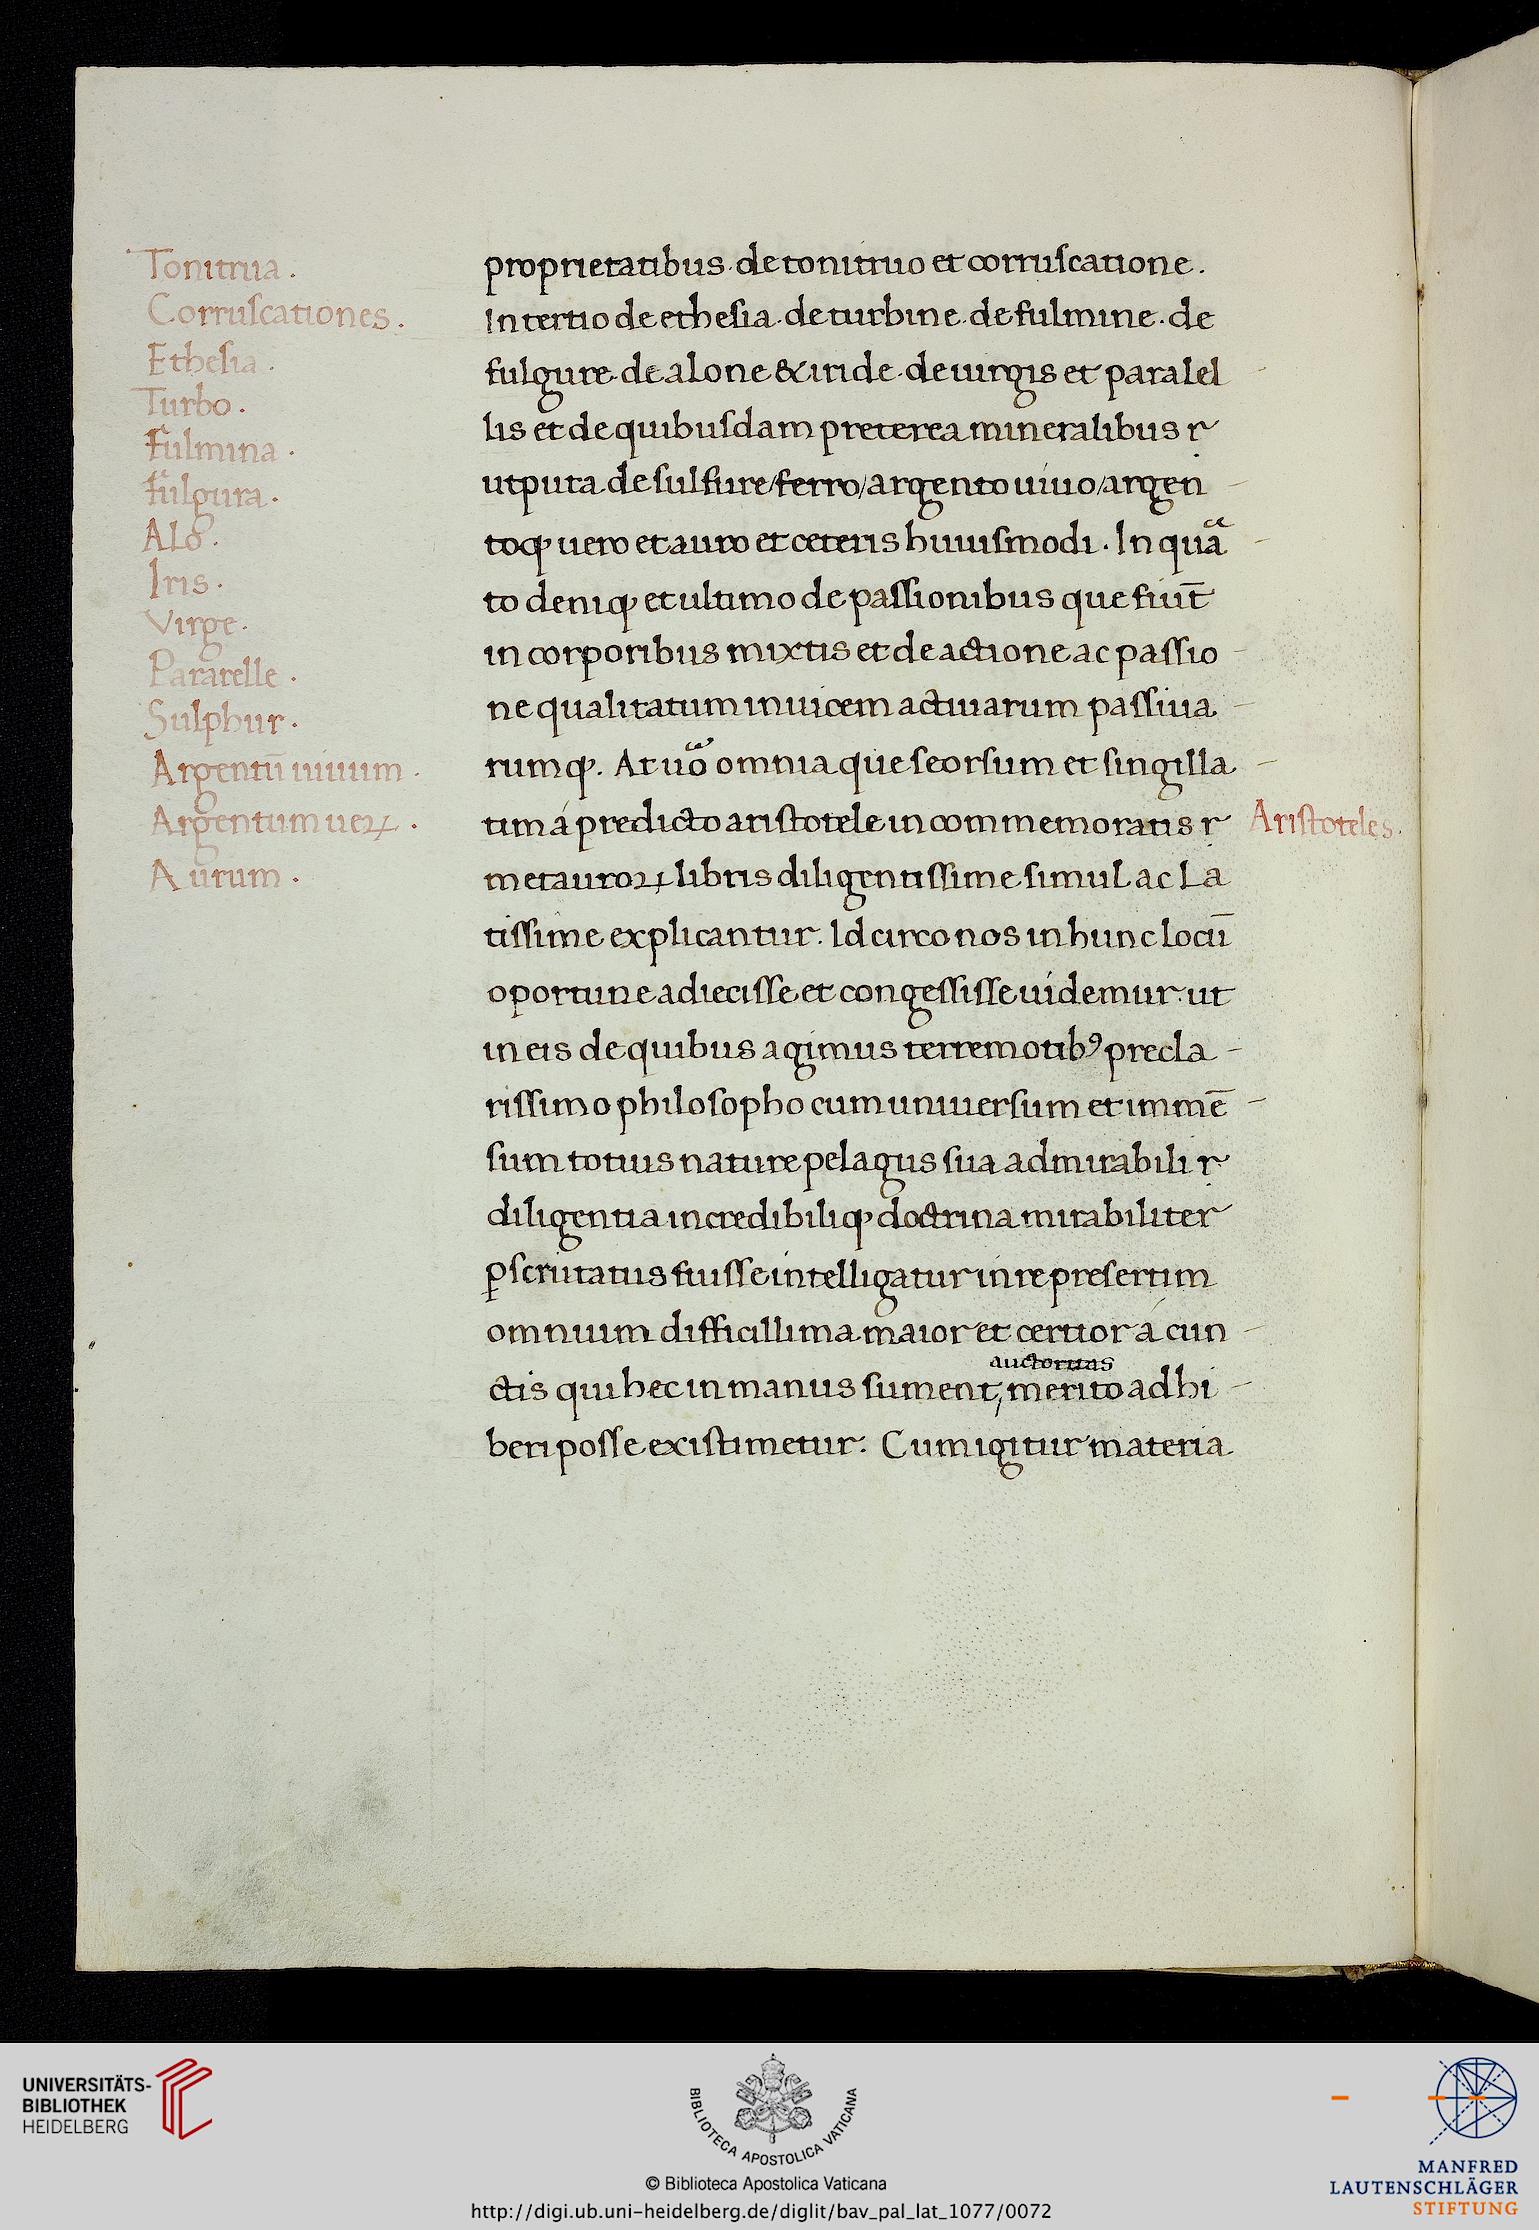 Tonitrua.
Corruſcationes.
Etheſia.
Turbo.
Fulmina.
fulgura.
Alo.
Iris.
Virge.
Pararelle.
Sulphur.
Argentū uiuum.
Argentum ueꝝ.
Aurum.
proprietatibus. de tonitruo et corruſcatione.
In tertio de etheſia. de turbine. de fulmine. de
fulgure. de alone & iride. de uirgis et paralel
lis et de quibuſdam preterea mineralibus r
utputa de ſulfure/ferro/argento uiuo/argen
toqꝫ uero et auro et ceteris huiuſmodi. In quᵃ̄
to deniqꝫ et ultimo de paſſionibus que fiūt
in corporibus mixtis et de actione ac paſſio
ne qualitatum inuicem actiuarum paſſiua
rumqꝫ. At uō omnia que ſeorſum et ſingilla
tim á predicto ariſtotele in commemoratis r
Ariſtoteles.
metauroꝝ libris diligentiſſime ſimul ac La
tiſſime explicantur. Idcirco nos in hunc locū
oportune adieciſſe et congeſſiſſe uidemur. ut
in eis de quibus agimus terremotibꝰ precla
riſſimo philoſopho cum uniuerſum et immē
ſum totius nature pelagus ſua admirabili r
diligentia incredibiliqꝫ doctrina mirabiliter
ꝑſcrutatus fuiſſe intelligatur in re preſertim
omnium difficillima maior et certior á cun
auctoritas
ctis qui hec in manus ſument, merito adhi
beri poſſe exiſtimetur. Cum igitur materia
UNIVERSITÄTS-
BIBLIOTHEK
HEIDELBERG
BIBLIOTECA APOSTOLICA VATICANA
© Biblioteca Apostolica Vaticana
http://digi.ub.uni-heidelberg.de/diglit/bav_pal_lat_1077/0072
MANFRED
LAUTENSCHLÄGER
STIFTUNG